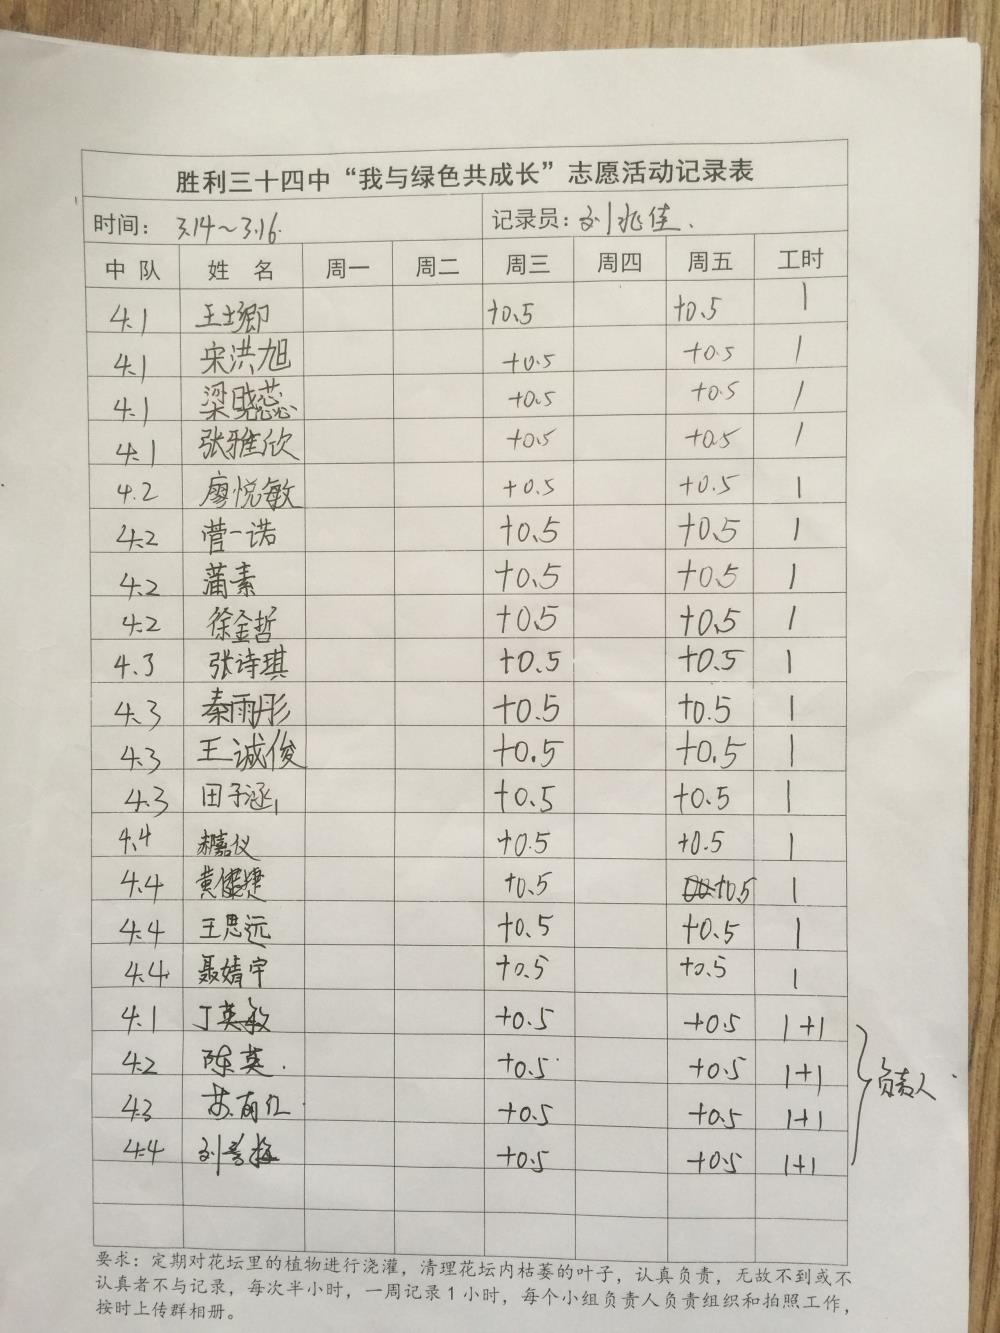 胜利三十四中“我与绿色共成长”志愿活动记录表
时间: 3.14~3.16. 记录员: 刘兆佳.
中 队 姓 名 周一 周二 周三 周四 周五 工时
4.1 王士卿 +0.5 +0.5 1
4.1 宋洪旭 +0.5 +0.5 1
4.1 梁晓蕊 +0.5 +0.5 1
4.1 张雅欣 +0.5 +0.5 1
4.2 廖悦敏 +0.5 +0.5 1
4.2 菅一诺 +0.5 +0.5 1
4.2 蒲素 +0.5 +0.5 1
4.2 徐金哲 +0.5 +0.5 1
4.3 张诗琪 +0.5 +0.5 1
4.3 秦雨彤 +0.5 +0.5 1
4.3 王诚俊 +0.5 +0.5 1
4.3 田子涵 +0.5 +0.5 1
4.4 嘉仪 +0.5 +0.5 1
4.4 黄俊捷 +0.5 +0.5 1
4.4 王思远 +0.5 +0.5 1
4.4 聂婧宇 +0.5 +0.5 1
4.1 丁英 +0.5 +0.5 1+1
4.2 陈英. +0.5 +0.5 1+1 负责人
4.3 苏丽红 +0.5 +0.5 1+1
4.4 刘 +0.5 +0.5 1+1
要求: 定期对花坛里的植物进行浇灌, 清理花坛内枯萎的叶子, 认真负责, 无故不到或不
认真者不与记录, 每次半小时, 一周记录1小时, 每个小组负责人负责组织和拍照工作,
按时上传群相册。